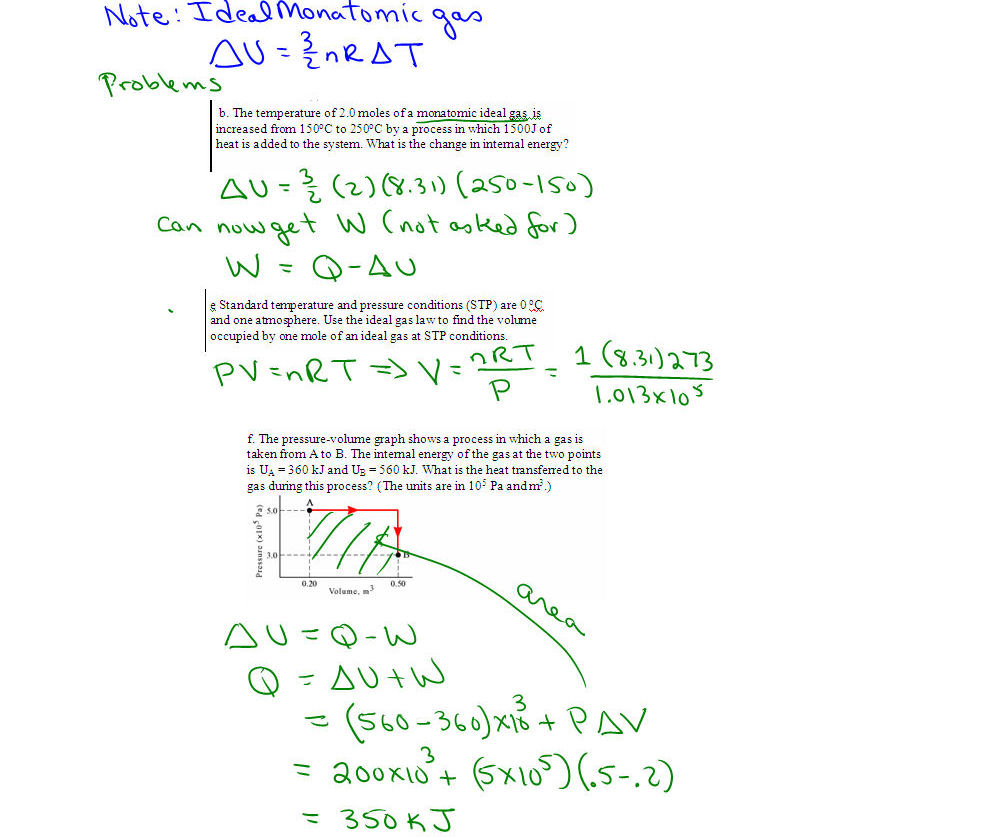 Note: Ideal Monatomic gas
ΔU = 3/2 nRΔT
Problems
b. The temperature of 2.0 moles of a monatomic ideal gas is
increased from 150°C to 250°C by a process in which 1500J of
heat is added to the system. What is the change in internal energy?
ΔU = 3/2 (2)(8.31)(250-150)
Can now get W (not asked for)
W = Q-ΔU
e Standard temperature and pressure conditions (STP) are 0 °C
and one atmosphere. Use the ideal gas law to find the volume
occupied by one mole of an ideal gas at STP conditions.
PV=nRT => V = nRT/P = 1(8.31)273/1.013x10⁵
f. The pressure-volume graph shows a process in which a gas is
taken from A to B. The internal energy of the gas at the two points
is U_A = 360 kJ and U_B = 560 kJ. What is the heat transferred to the
gas during this process? (The units are in 10⁵ Pa and m³.)
A
5.0
Pressure (x10⁵ Pa)
3.0
B
0.20
0.50
Volume, m³
area
ΔU = Q-W
Q = ΔU+W
= (560-360)x10³ + PΔV
= 200x10³ + (5x10⁵)(.5-.2)
= 350 KJ